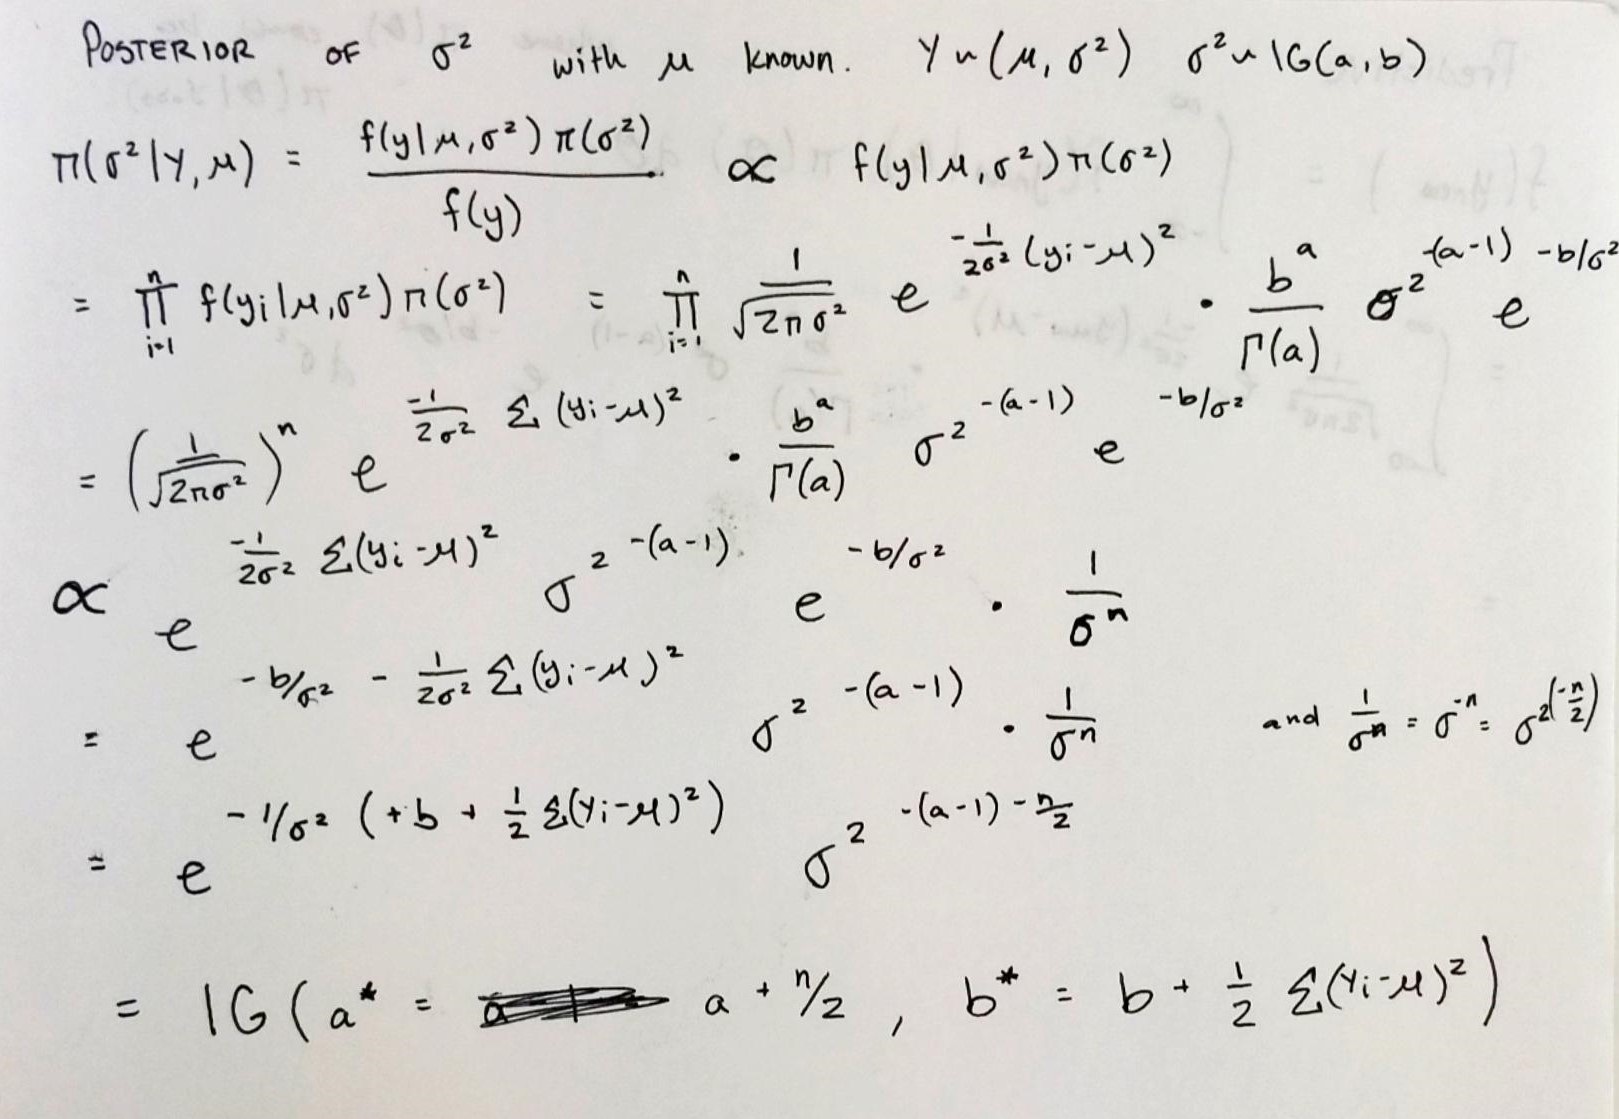 POSTERIOR OF σ² with μ known. Y ~ (μ, σ²) σ² ~ IG(a, b)
π(σ²|Y, μ) = f(y|μ, σ²) π(σ²) / f(y) ∝ f(y|μ, σ²) π(σ²)
= ∏_{i=1}^{n} f(yi|μ, σ²) π(σ²) = ∏_{i=1}^{n} 1/√(2πσ²) e^{-1/2σ² (yi-μ)²} · b^a/Γ(a) σ²^{-(a-1)} e^{-b/σ²}
= (1/√(2πσ²))^n e^{-1/2σ² Σ(yi-μ)²} · b^a/Γ(a) σ²^{-(a-1)} e^{-b/σ²}
∝ e^{-1/2σ² Σ(yi-μ)²} σ²^{-(a-1)} e^{-b/σ²} · 1/σ^n
= e^{-b/σ² - 1/2σ² Σ(yi-μ)²} σ²^{-(a-1)} · 1/σ^n and 1/σ^n = σ^{-n} = σ^{2(-n/2)}
= e^{-1/σ² (+b + 1/2 Σ(yi-μ)²)} σ²^{-(a-1) - n/2}
= IG(a* = a + n/2, b* = b + 1/2 Σ(yi-μ)²)